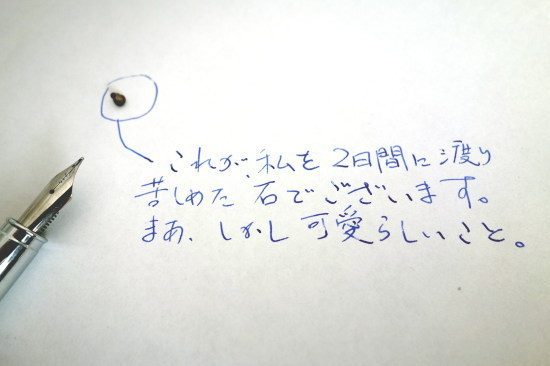 これが、私を2日間に渡り
苦しめた石でございます。
まあ、しかし可愛らしいこと。